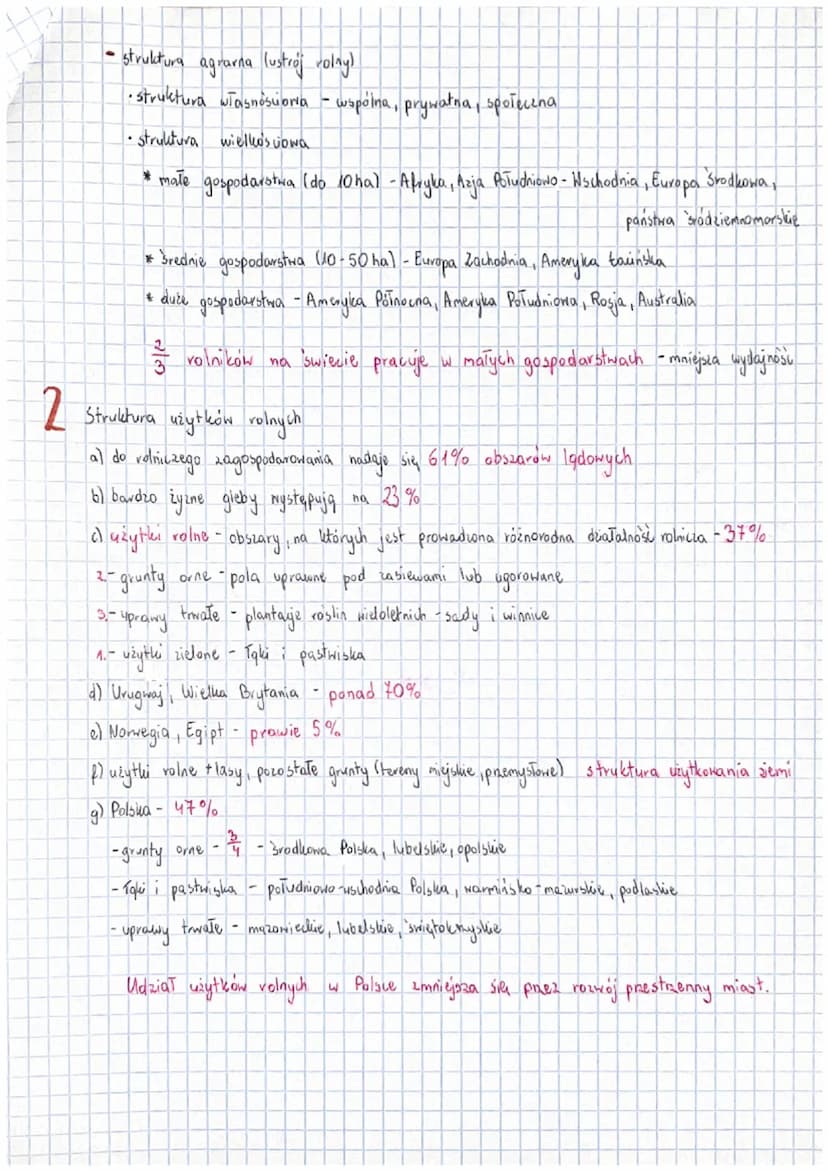 - struktura agrarna (ustrój rolny)
• struktura własnościowa - wspólna, prywatna, społeczna
• struktura wielkościowa
* małe gospodarstwa (do 10 ha) - Afryka, Azja Południowo-Wschodnia, Europa Środkowa,
państwa śródziemnomorskie
* średnie gospodarstwa (10-50 ha) - Europa Zachodnia, Ameryka Łacińska
* duże gospodarstwa - Ameryka Północna, Ameryka Południowa, Rosja, Australia
2/3 rolników na świecie pracuje w małych gospodarstwach - mniejsza wydajność
2 Struktura użytków rolnych
a) do rolniczego zagospodarowania nadaje się 61% obszarów lądowych
b) bardzo żyzne gleby występują na 23%
c) użytki rolne - obszary, na których jest prowadzona różnorodna działalność rolnicza - 37%
2.- grunty orne - pola uprawne pod zasiewami lub ugorowane
3.- uprawy trwałe - plantacje roślin wieloletnich - sady i winnice
1.- użytki zielone - łąki i pastwiska
d) Urugwaj, Wielka Brytania - ponad 70%
e) Norwegia, Egipt - prawie 5%
f) użytki rolne + lasy, pozostałe grunty (tereny miejskie, przemysłowe) struktura użytkowania ziemi
g) Polska - 47%
- grunty orne - 3/4 - środkowa Polska, lubelskie, opolskie
- łąki i pastwiska - południowo-wschodnia Polska, warmińsko-mazurskie, podlaskie
- uprawy trwałe - mazowieckie, lubelskie, świętokrzyskie
Udział użytków rolnych w Polsce zmniejsza się przez rozwój przestrzenny miast.